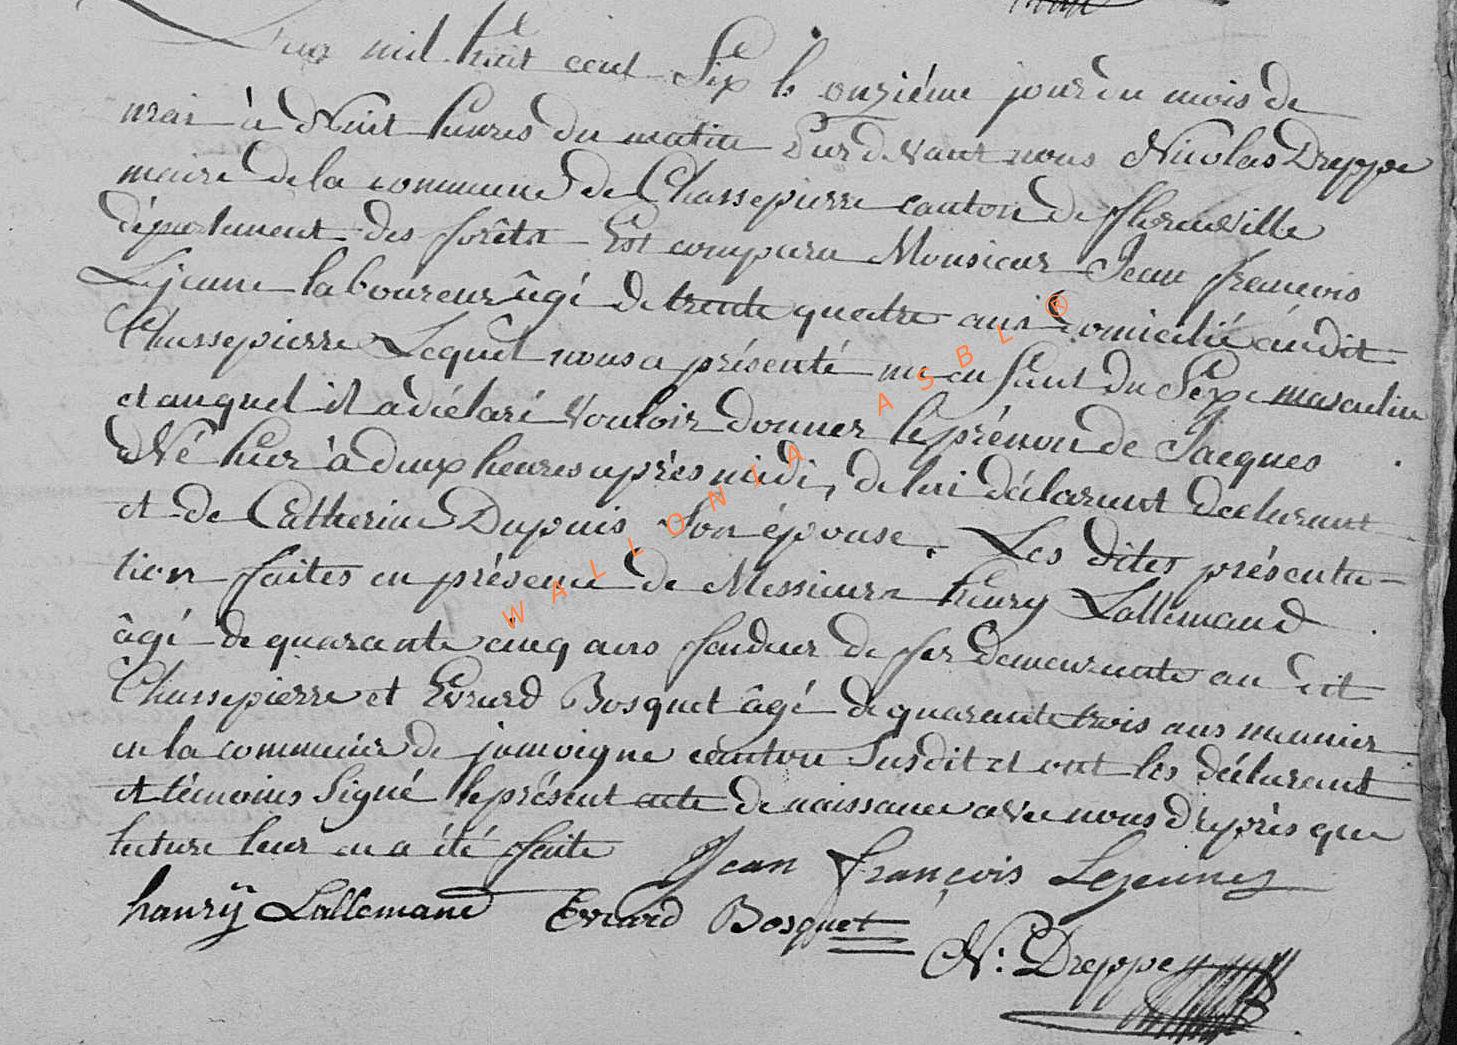 L'an mil huit cent Six le onziéme jour du mois de
mai à Nuit heures du matin Pardevant nous Nicolas Dreppe
maire de la commune de Chassepierre canton de florenville
département des forêts Est comparu Monsieur Jean francois
Lejeune laboureur âgé de trente quatre ans domicilié audit
Chassepierre Lequel nous a présenté un enfant du Sexe masculin
et auquel il a déclaré Vouloir donner le prénom de Jacques
Né hier à deux heures après midi, de lui déclarant declarant
et de Catherine Dupuis Son épouse. Les dites présenta-
tion faites en présence de Messieurs henry Lallemand
âgé de quarante cinq ans fondeur de fer demeurante au dit
Chassepierre et Evrard Bosquet âgé de quarante trois ans meunier
en la commune de jamoigne canton Susdit et ont les déclarant
et témoins Signé le présent acte de naissance avec nous d'après que
lecture leur en a été faite Jean françois Lejeune
hanrÿ Lallemand Evrard Bosquet
N: Dreppe
WALLONIA ASBL ®